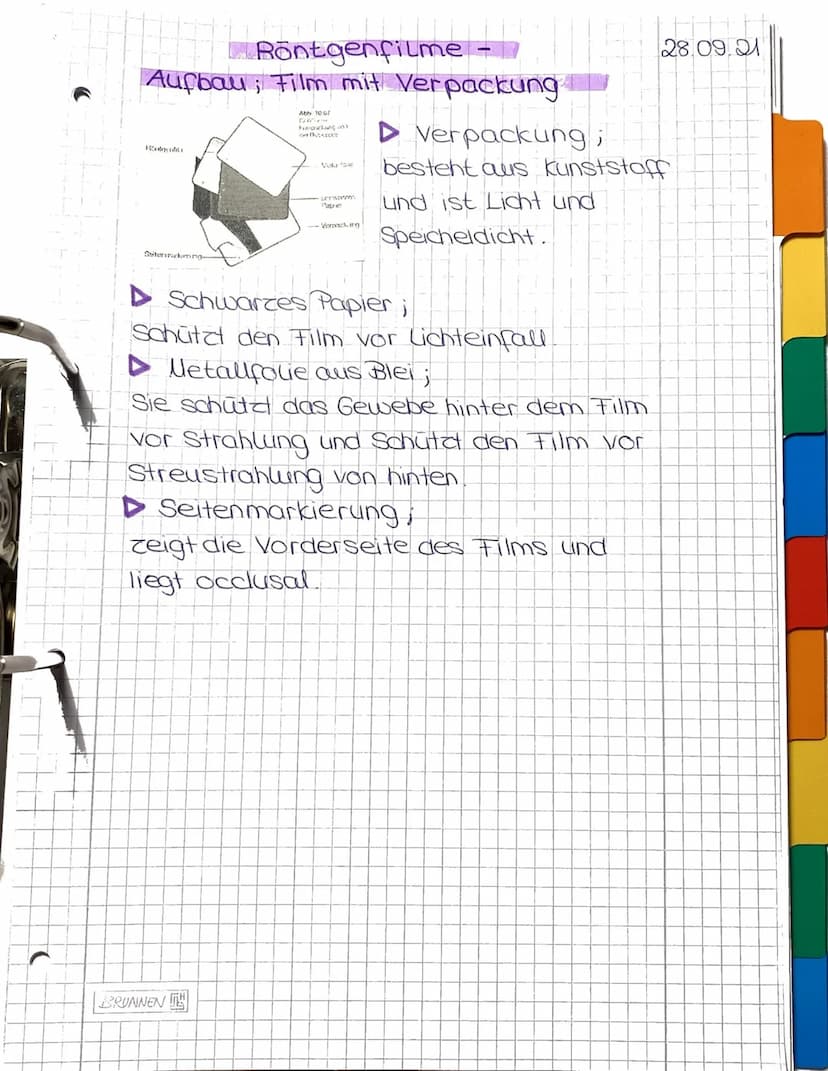 Röntgenfilme -
28.09.21
Aufbau; Film mit Verpackung
Röntgenfilm
Abb. 10.61
Metallfolie
schwarzes
Papier
Verpackung
Seitenmarkierung
Verpackung;
besteht aus Kunststoff
und ist Licht und
Speicheldicht.
Schwarzes Papier;
Schützt den Film vor Lichteinfall.
Metallfolie aus Blei;
Sie schützt das Gewebe hinter dem Film
vor Strahlung und Schützt den Film vor
Streustrahlung von hinten.
Seitenmarkierung;
zeigt die Vorderseite des Films und
liegt occlusal.
BRUNNEN